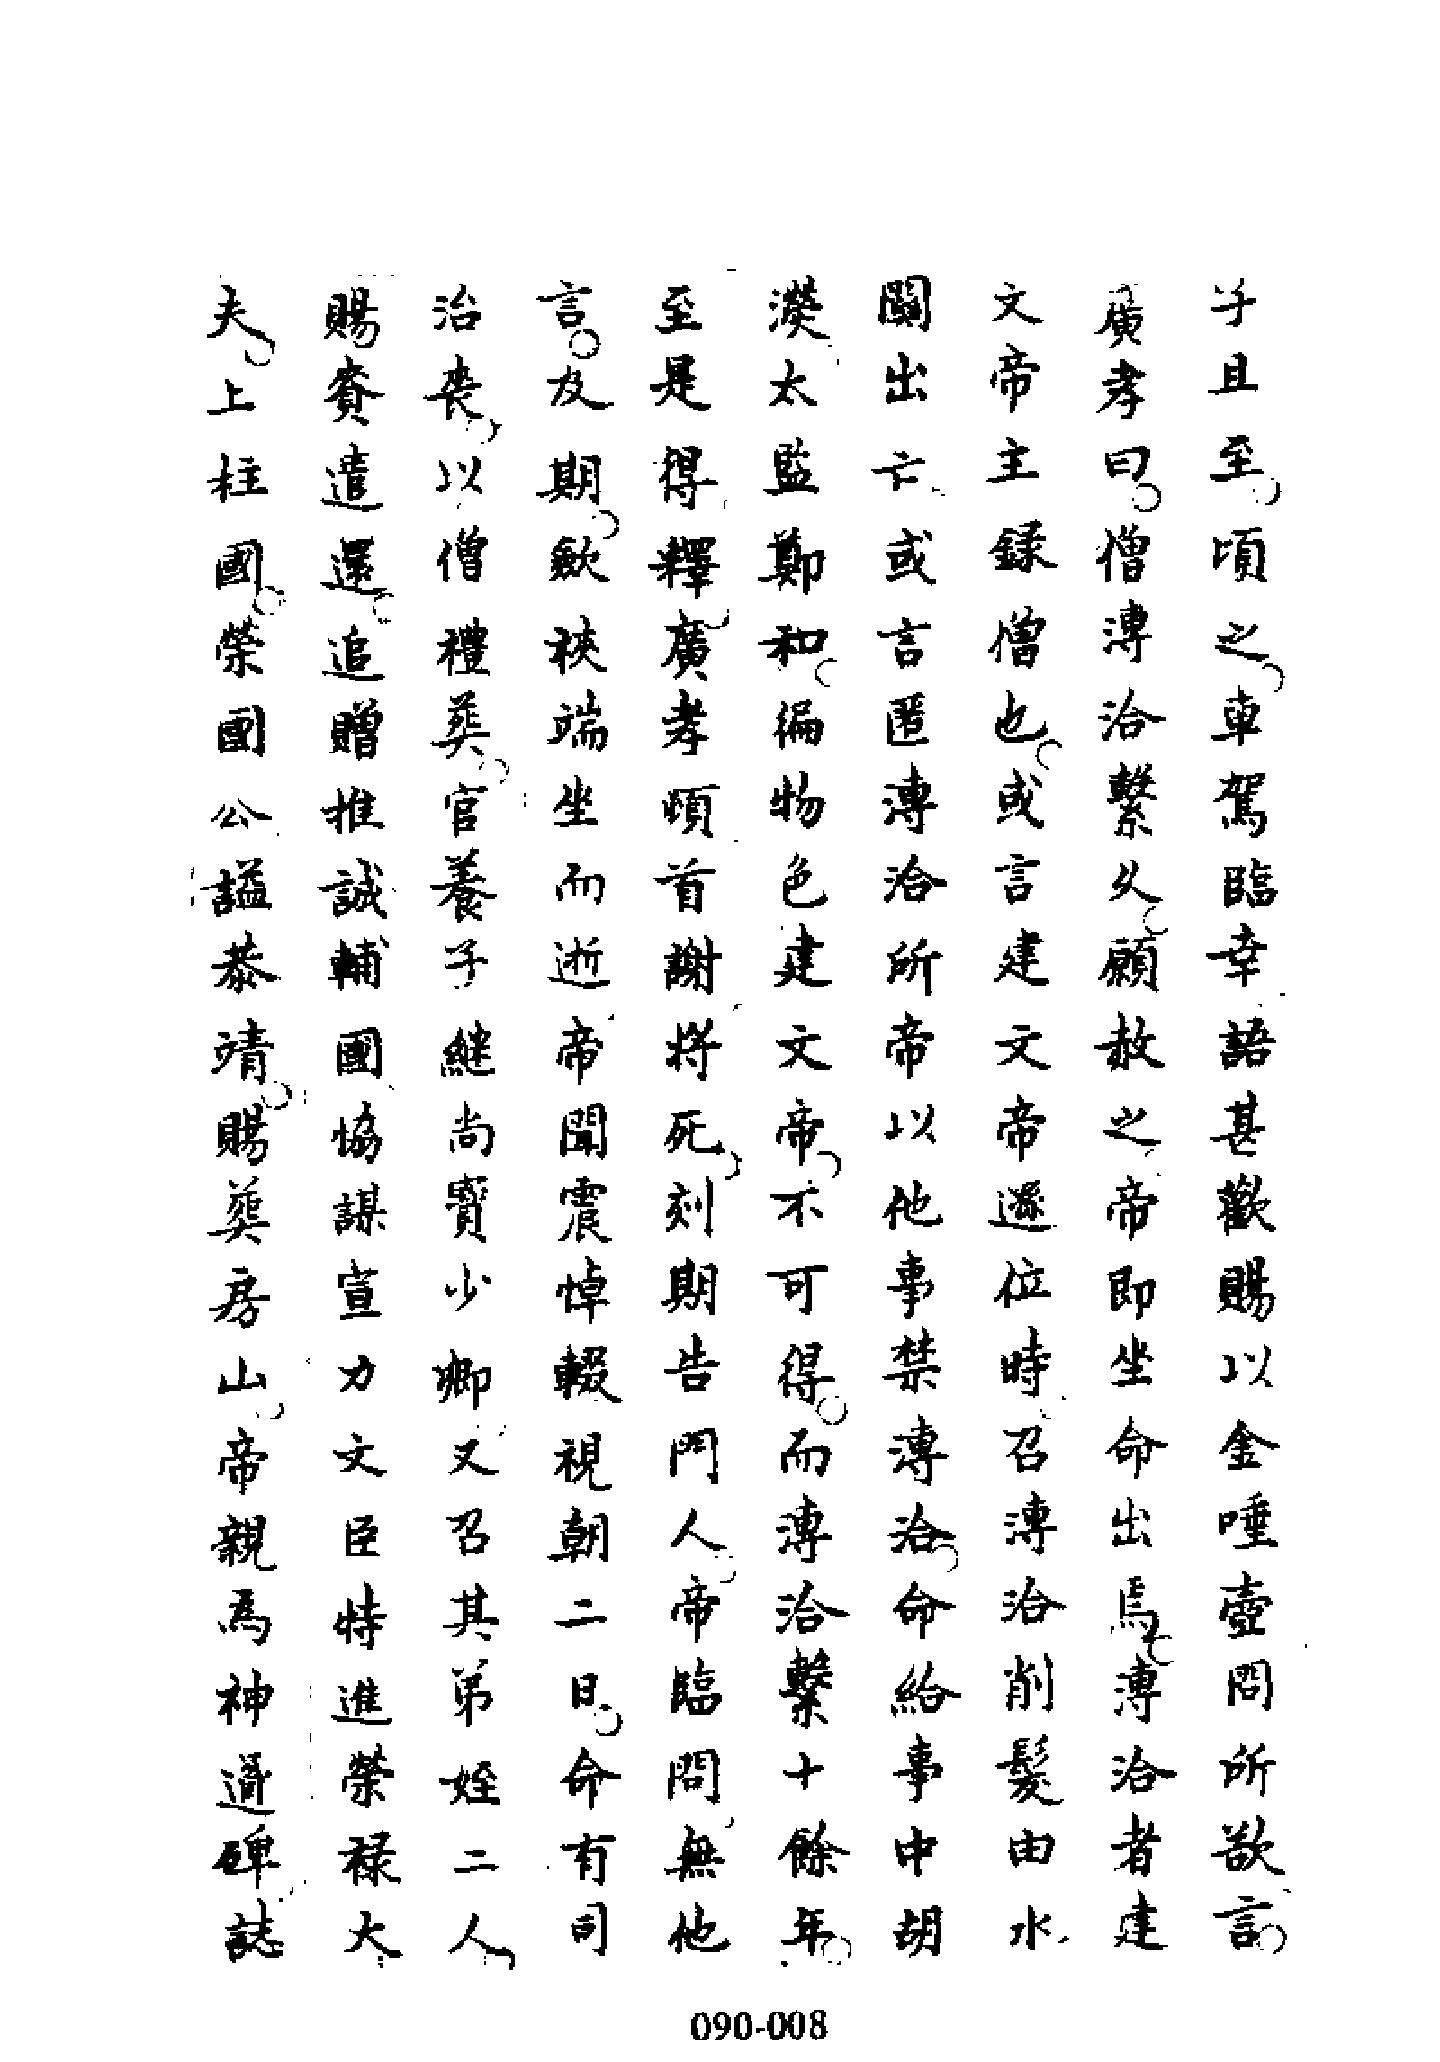 子且至頃之車駕臨幸語甚歡賜以金唾壺問所欲言
廣孝曰僧溥洽繫久願赦之帝即坐命出焉溥洽者建
文帝主録僧也或言建文帝遜位時召溥洽削髮由水
關出亡或言匿溥洽所帝以他事禁溥洽命給事中胡
濙太監鄭和徧物色建文帝不可得而溥洽繫十餘年
至是得釋廣孝頓首謝将死刻期告門人帝臨問無他
言及期歛袂端坐而逝帝聞震悼輟視朝二日命有司
治喪以僧禮葬官養子繼尚寶少卿又召其弟姪二人
賜賚遣還追贈推誠輔國協謀宣力文臣特進榮祿大
夫上柱國榮國公謚恭靖賜葬房山帝親為神道碑誌
090-008